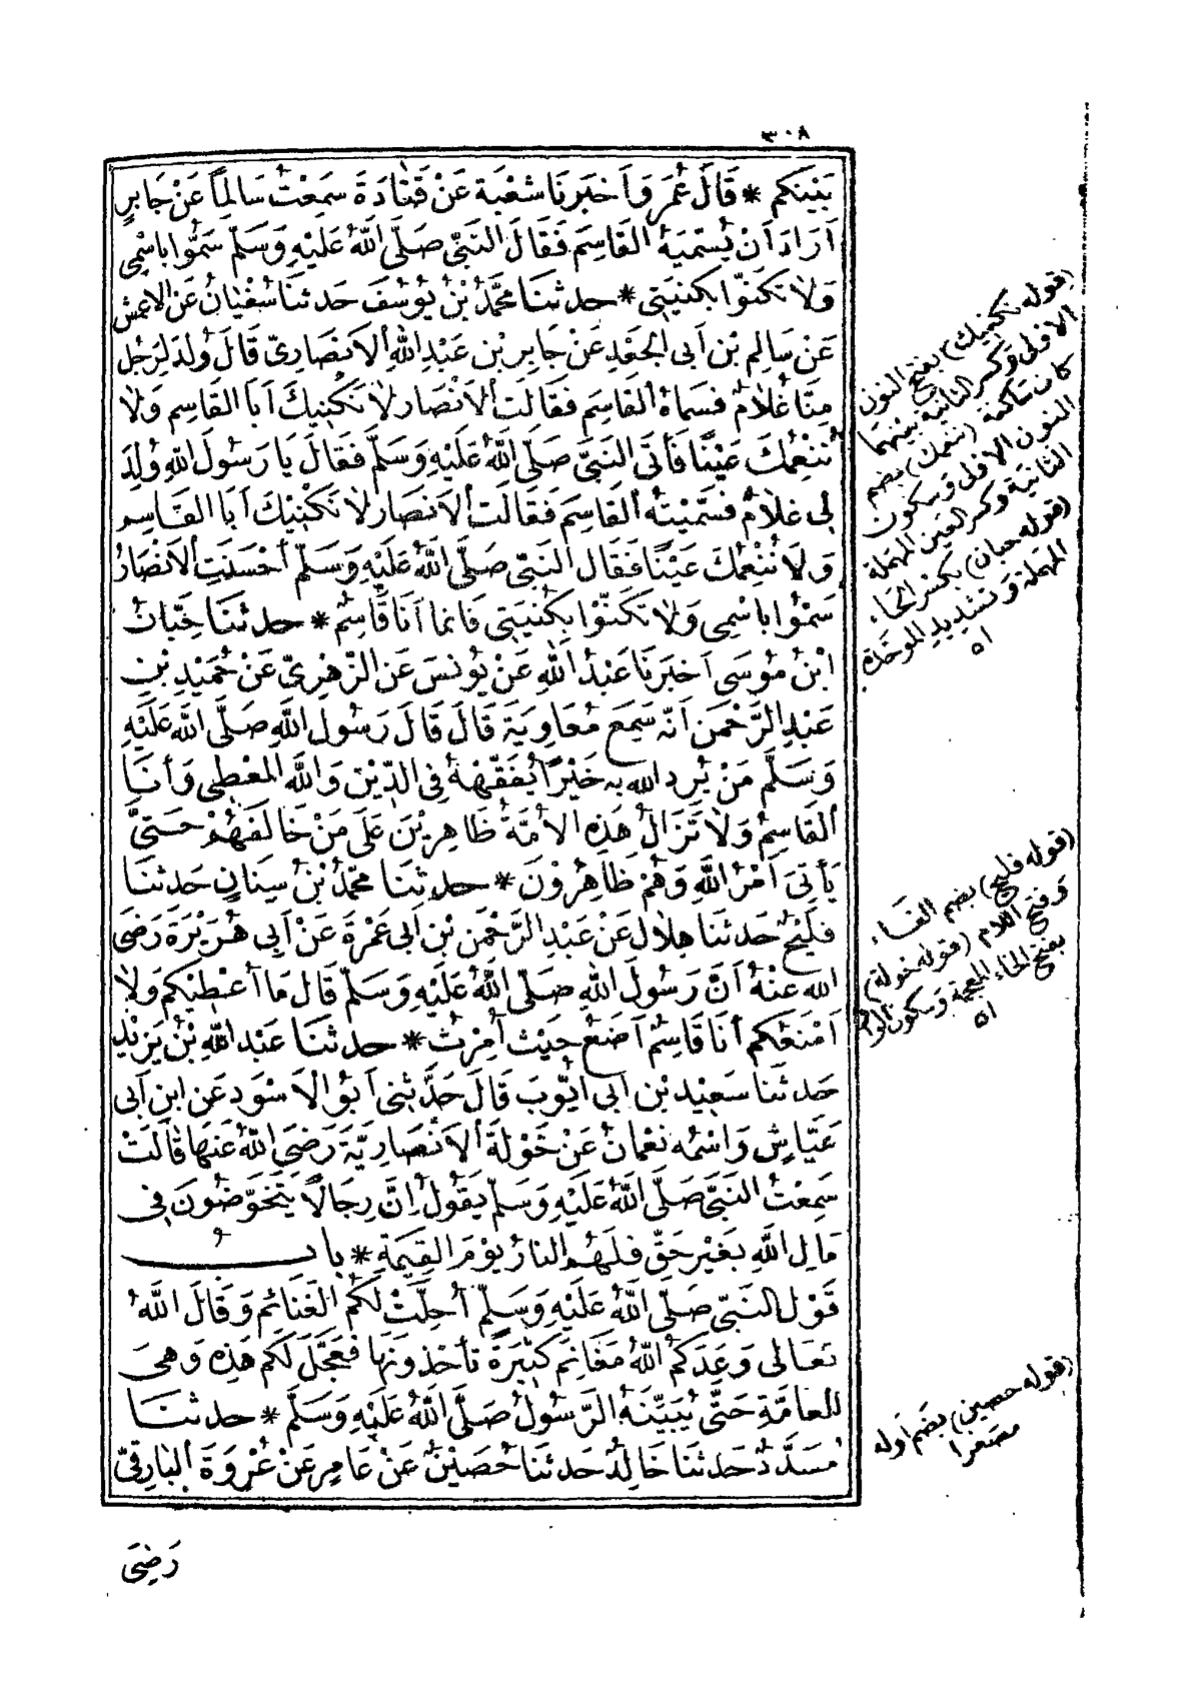 ٣٠٨
بَيْنَكُم * قَالَ عُمَر وَأَخبَرنَا شعْبَة عَنْ قَتَادَةَ سَمِعْتُ سَالِماً عَنْ جَابِرٍ
أَرَادَ أَنْ يُسَمّيَهُ القَاسِمَ فَقَالَ النَبىّ صَلَّى اللَّهُ عَلَيْهِ وَسَلّم سَمُّوا باسْمِى
وَلَا تَكَنّوا بكنيَتِى * حدثنا محَمَّدُ بْنُ يُوسُفَ حَدثنَا سُفْيَانُ عَن الاعمش
عَنْ سَالِم بْن أَبى الجَعْدِ عَنْ جَابِر بْن عَبْدِ اللهِ الاَنصَارِىّ قَالَ وُلدَ لِرَجُل
مِنّا غُلَامٌ فسَماهُ القَاسِمَ فقَالَت الاَنْصَار لَا نَكْنِيكَ أَبَا القَاسِم وَلَا
نُنْعِمُكَ عَيْنًا فَأتَى النَبىَّ صَلّى اللَّهُ عَلَيْهِ وَسَلّم فقَالَ يَا رَسُولَ اللهِ وُلِدَ
لِى غلَامٌ فسَمّيْتهُ القَاسِمَ فقَالَت الاَنصَار لَا نَكْنِيكَ أَبَا القَاسِم
وَلَا نُنْعِمُكَ عَيْنًا فَقَال النبىّ صَلَّى اللَّهُ عَلَيْهِ وَسَلّم أَحْسَنَتِ الاَنْصَارُ
سَمُّوا باسْمِى وَلَا تَكَنّوْا بِكُنيَتِى فَانما أَنَا قَاسِمٌ * حدثنَا حِبّانُ
ابْنُ مُوسَى أَخبَرنَا عَبْدُ اللهِ عَنْ يُونسَ عَن الزّهْرِىّ عَنْ حُمَيْدِ بْنِ
عَبْدِ الرَّحْمَن أَنّه سَمِعَ مُعَاوِيَةَ قَالَ قَالَ رَسُولُ اللَّهِ صَلَّى اللَّهُ عَلَيْهِ
وَسَلَّم مَنْ يُرِدِ الله بِه خَيْرًا يُفَقّههُ فى الدّيْن وَاللَّهُ المعْطِى وَأَنَا
القَاسِمُ وَلَا تَزَالُ هَذِهِ الاُمّةُ ظَاهِرِيْنَ عَلَى مَنْ خَالَفَهُمْ حَتىَّ
يَأْتِىَ أَمْرُ اللَّهِ وَهُمْ ظَاهِرُوْنَ * حدثنا محَمَّدُ بْنُ سِنَانٍ حَدثنَا
فلَيْحٌ حَدثنَا هِلَال عَنْ عَبْدِ الرَّحْمَن بْن أَبى عَمْرَةَ عَنْ أَبِى هُرَيْرَةَ رَضىَ
الله عَنْهُ أَنّ رَسُولَ اللهِ صَلّى اللَّهُ عَلَيْهِ وَسَلّم قَال مَا أُعْطِيْكم وَلَا
أَمْنَعُكم أنَا قَاسِمٌ أَضَعُ حَيْث أُمِرْتُ * حدثنَا عَبْد اللهِ بْنُ يَزِيْد
حَدثنَا سَعِيْد بْن أَبى أَيّوبَ قَالَ حَدَّثنِى أَبُو الاَسْوَد عَن ابن أَبى
عَيَّاشٍ وَاسْمُه نعْمَانُ عَنْ خَوْلةَ الاَنْصَارِيّةِ رَضِىَ اللَّهُ عَنهَا قَالَتْ
سَمِعْتُ النَبىَّ صَلَّى اللَّهُ عَلَيْهِ وَسَلّم يَقُولُ إنَّ رِجَالاً يَتَخَوّضُونَ فِى
مَالِ اللَّهِ بغَيْرِ حَقّ فلَهُم النارُ يوْمَ القِيمَةِ * بابُ
قَوْل النَبىّ صَلّى اللَّهُ عَلَيْهِ وَسَلّم أُحِلَّتْ لَكُم الغَنَائم وَقَالَ اللَّهُ
تعَالى وَعَدَكُم اللَّهُ مَغَانِمَ كثِيْرَةً تأخذونَها فعَجَّلَ لَكم هَذِهِ وَهىَ
للعامَّةِ حَتّى يُبَيِّنَهُ الرّسُولُ صَلّى اللَّهُ عَلَيْهِ وَسَلَّم * حدثنَا
مُسَدَّدٌ حَدثنَا خَالِدٌ حَدثنَا حُصَيْنٌ عَنْ عَامِرٍ عَنْ عُرْوَةَ البَارِقىّ
رَضِىَ
(قوله نكنيك) بفتح النون
الاولى وكسر الثانية بينهما
كاف ساكنة (ننعمك) بضم
النون الاولى وسكون
الثانية وكسر العين المهملة
(قوله حبان) بكسر الحاء
المهملة وتشديد الموحدة
اه
(قوله فليح) بضم الفاء
وفتح اللام (قوله خولة)
بفتح الخاء المعجمة وسكون الواو
اه
(قوله حصين) بضم أوله
مصغرا